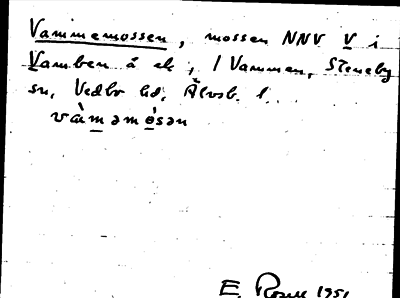 Vammemossen, mossen NNV V i
Vamben å ek, / Vammen, Steneby
sn, Vedbo hd, Älvsb. l.
vàməmósən
E. Rosell 1951